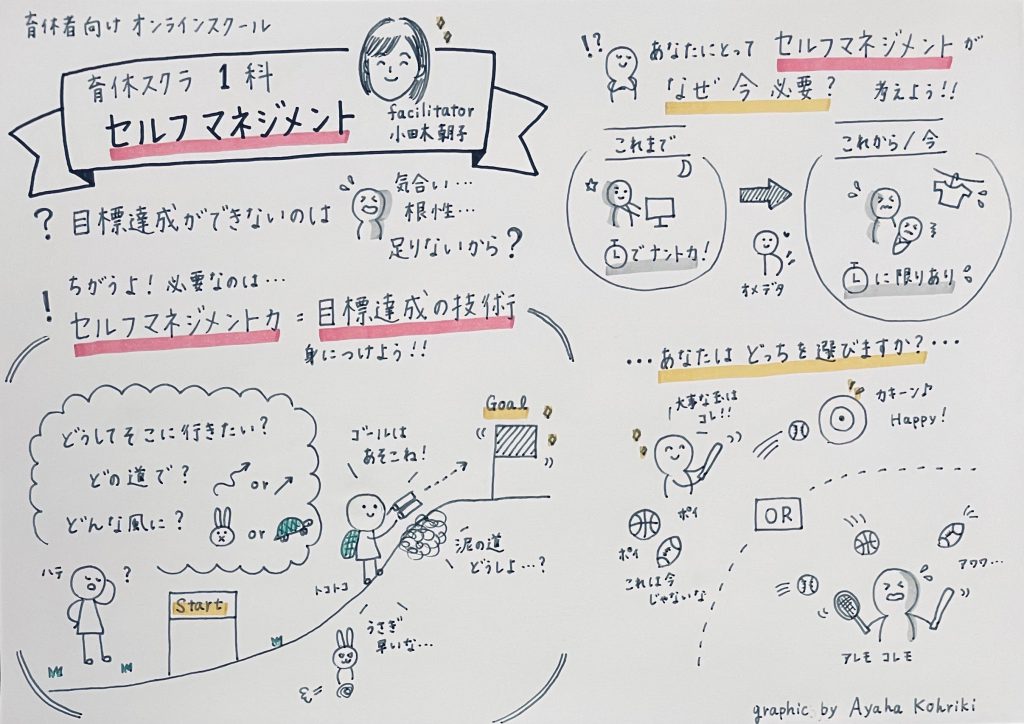 育休者向け オンラインスクール
育休スクラ 1科
セルフマネジメント
facilitator
小田木朝子
? 目標達成ができないのは
気合い…
根性…
足りないから?
! ちがうよ! 必要なのは…
セルフマネジメント力 = 目標達成の技術
身につけよう!!
どうしてそこに行きたい?
どの道で?
or
どんな風に?
or
ハテ
?
Start
ゴールは
あそこね!
Goal
トコトコ
泥の道
どうしよ…?
うさぎ
早いな…
!?
あなたにとって セルフマネジメントが
なぜ 今 必要? 考えよう!!
これまで
でナントカ!
オメデタ
これから/今
に限りあり
…あなたは どっちを選びますか?…
大事な玉は
コレ!!
カキーン♪
Happy!
ポイ
ポイ
これは今
じゃないな
OR
アワワ…
アレモ コレモ
graphic by Ayaha Kohriki